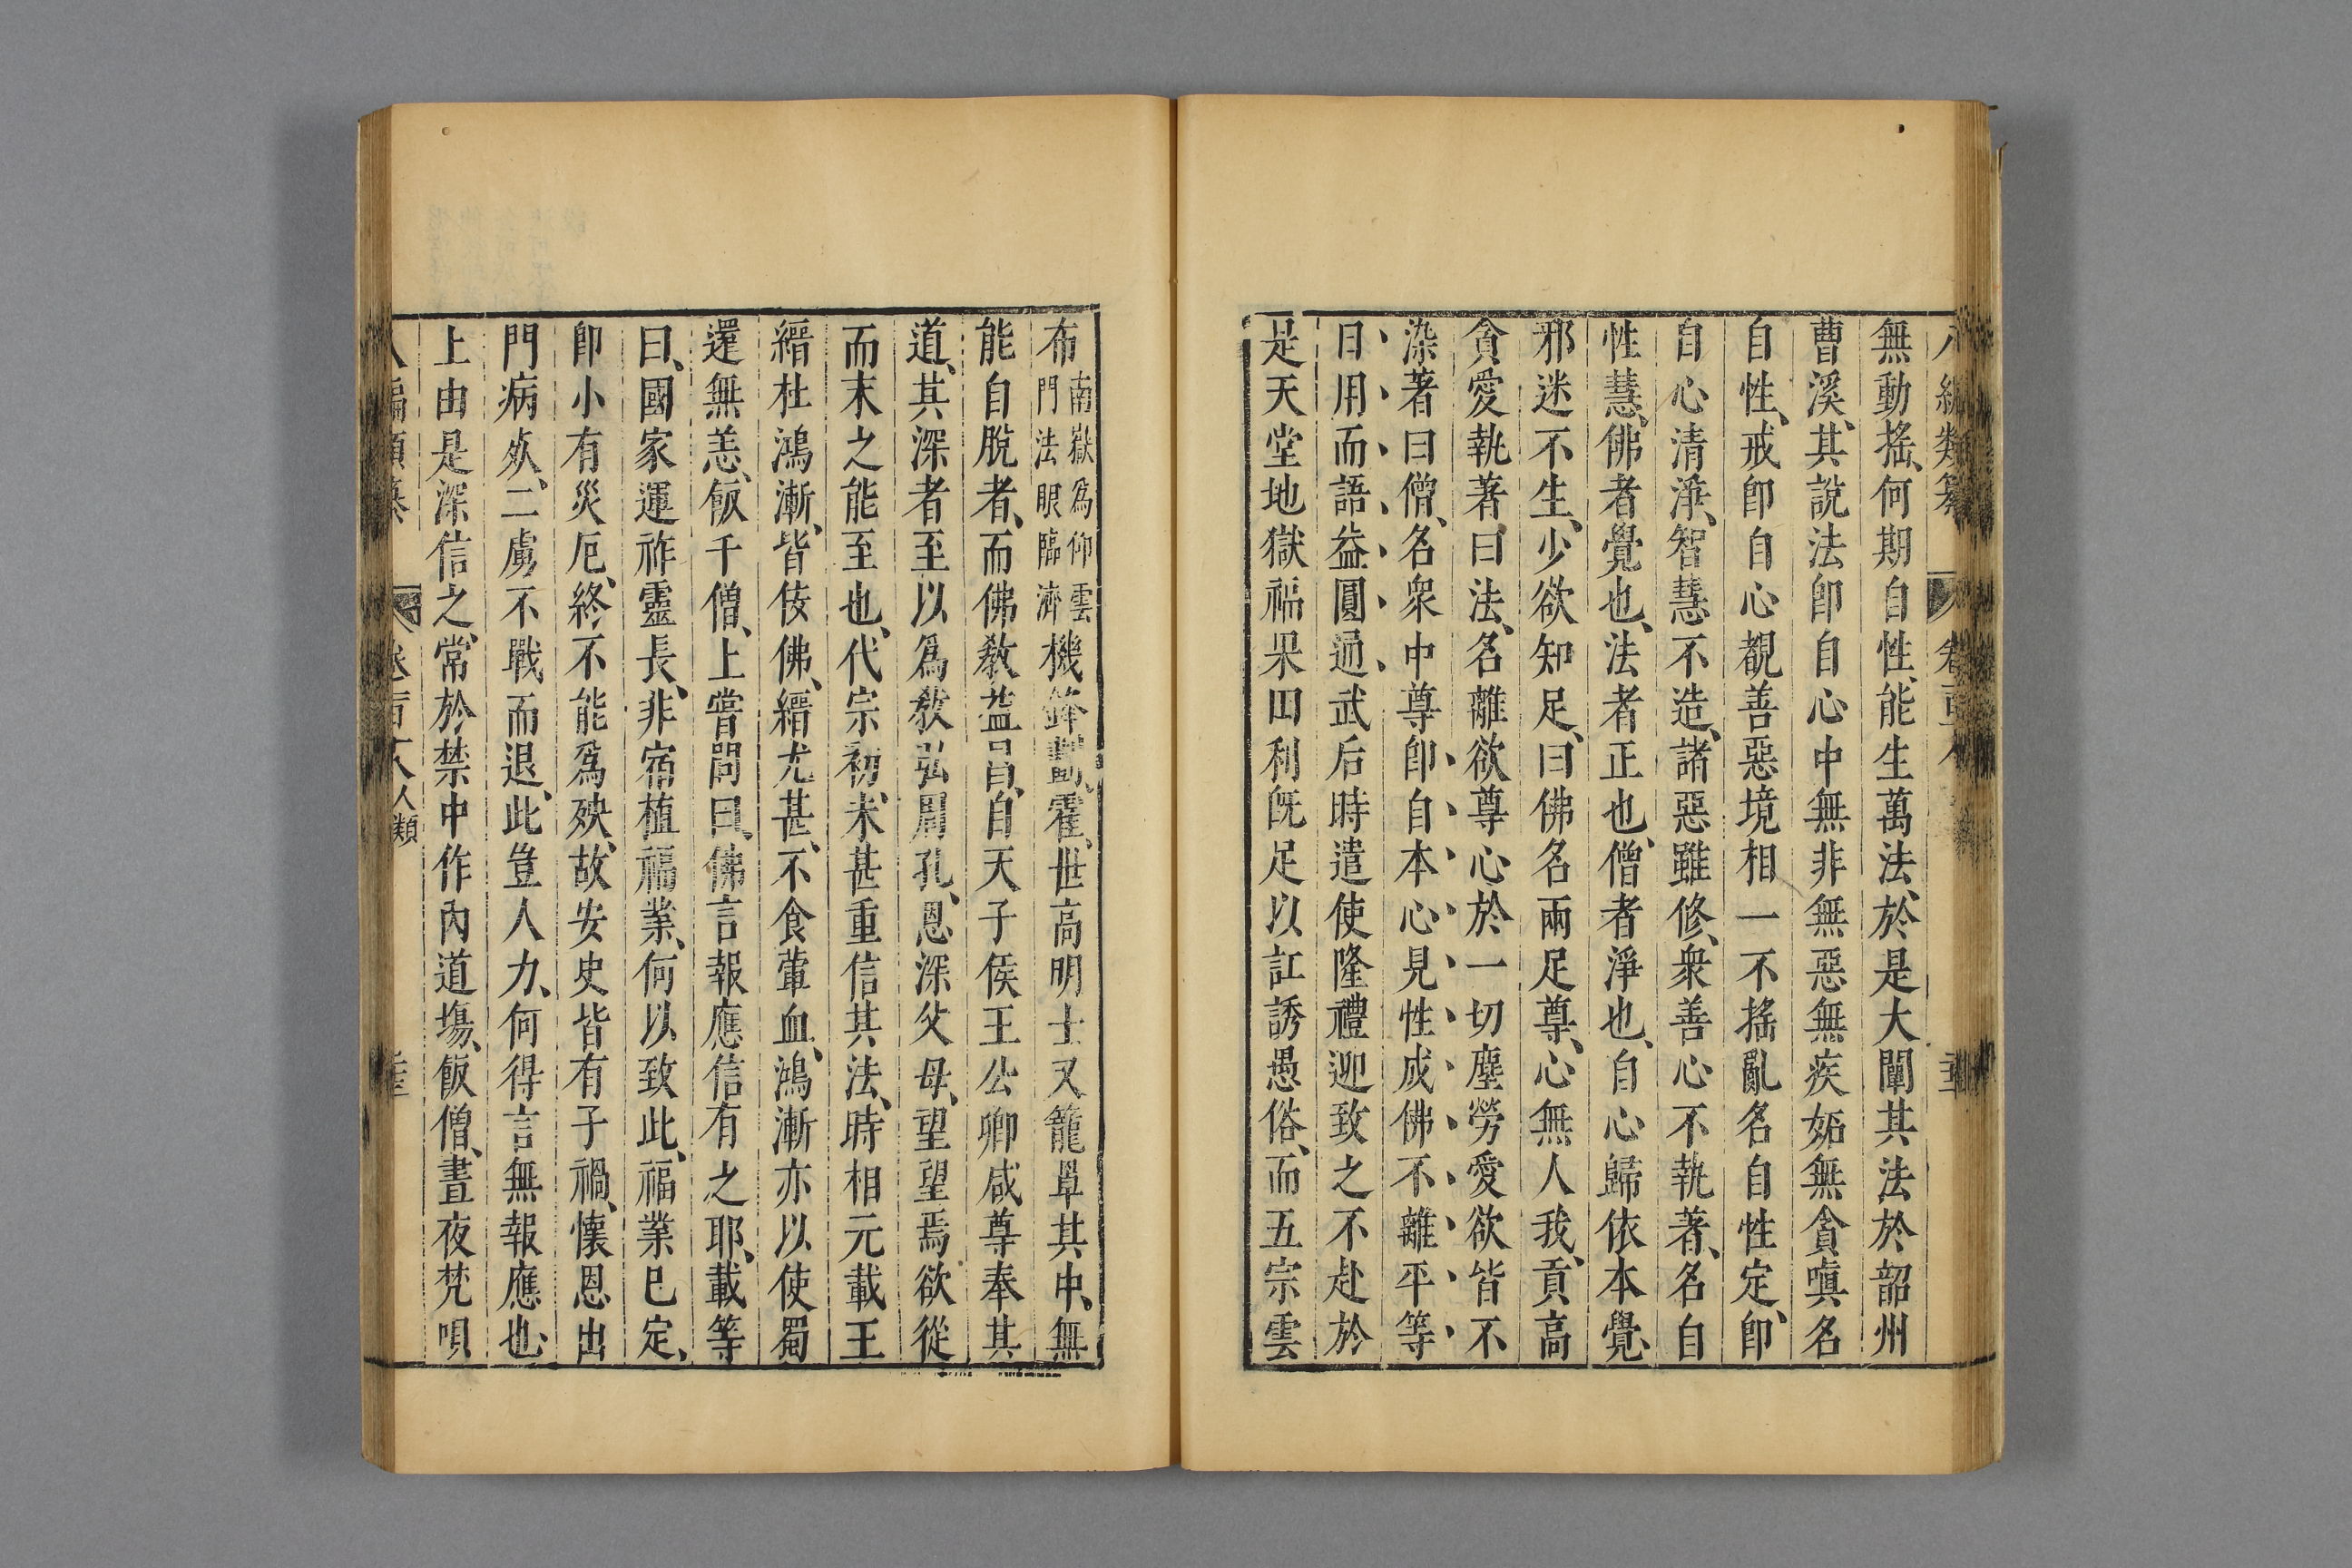 無動搖、何期自性、能生萬法、於是大闡其法於韶州
曹溪、其說法卽自心中無非無惡無疾妬無貪嗔名
自性、戒卽自心覩善惡境相一不搖亂名自性定、卽
自心清淨、智慧不造、諸惡雖修、衆善心不執著、名自
性慧、佛者覺也、法者正也、僧者淨也、自心歸依本覺、
邪迷不生、少欲知足、曰佛名兩足尊、心無人我、貢高
貪愛執著、曰法、名離欲尊心於一切塵勞愛欲皆不
染著曰僧、名衆中尊卽自本心見性成佛不離平等
日用而語益圓通武后時遣使隆禮迎致之不赴於
是天堂地獄福果田利旣足以訌誘愚俗、而五宗雲
布南嶽爲仰雲門法眼臨濟機鋒劃霍、世高明士又籠罩其中、無
能自脫者、而佛敎益昌、自天子侯王公卿咸尊奉其
道、其深者至以爲敎弘周孔、恩深父母、望望焉欲從
而末之能至也、代宗初、未甚重信其法、時相元載王
縉杜鴻漸、皆佞佛、縉尤甚、不食葷血、鴻漸亦以使蜀
還無恙、飯千僧、上嘗問曰、佛言報應信有之耶、載等
曰、國家運祚靈長、非宿植福業、何以致此、福業已定、
卽小有災厄、終不能爲殃、故安史皆有子禍、懷恩出
門病死、二虜不戰而退、此豈人力、何得言無報應也、
上由是深信之、常於禁中作內道塲、飯僧、晝夜梵唄
人類